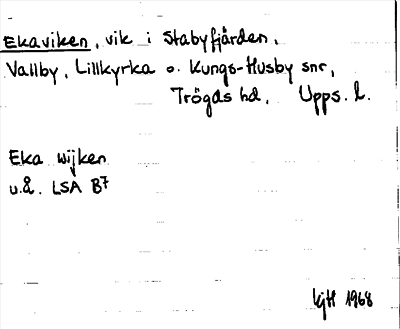 Ekaviken, vik i Stabyfjärden,
Vallby, Lillkyrka o. Kungs-Husby snr,
Trögds hd, Upps. l.
Eka wijken
u.å. LSA B7
kjH 1968